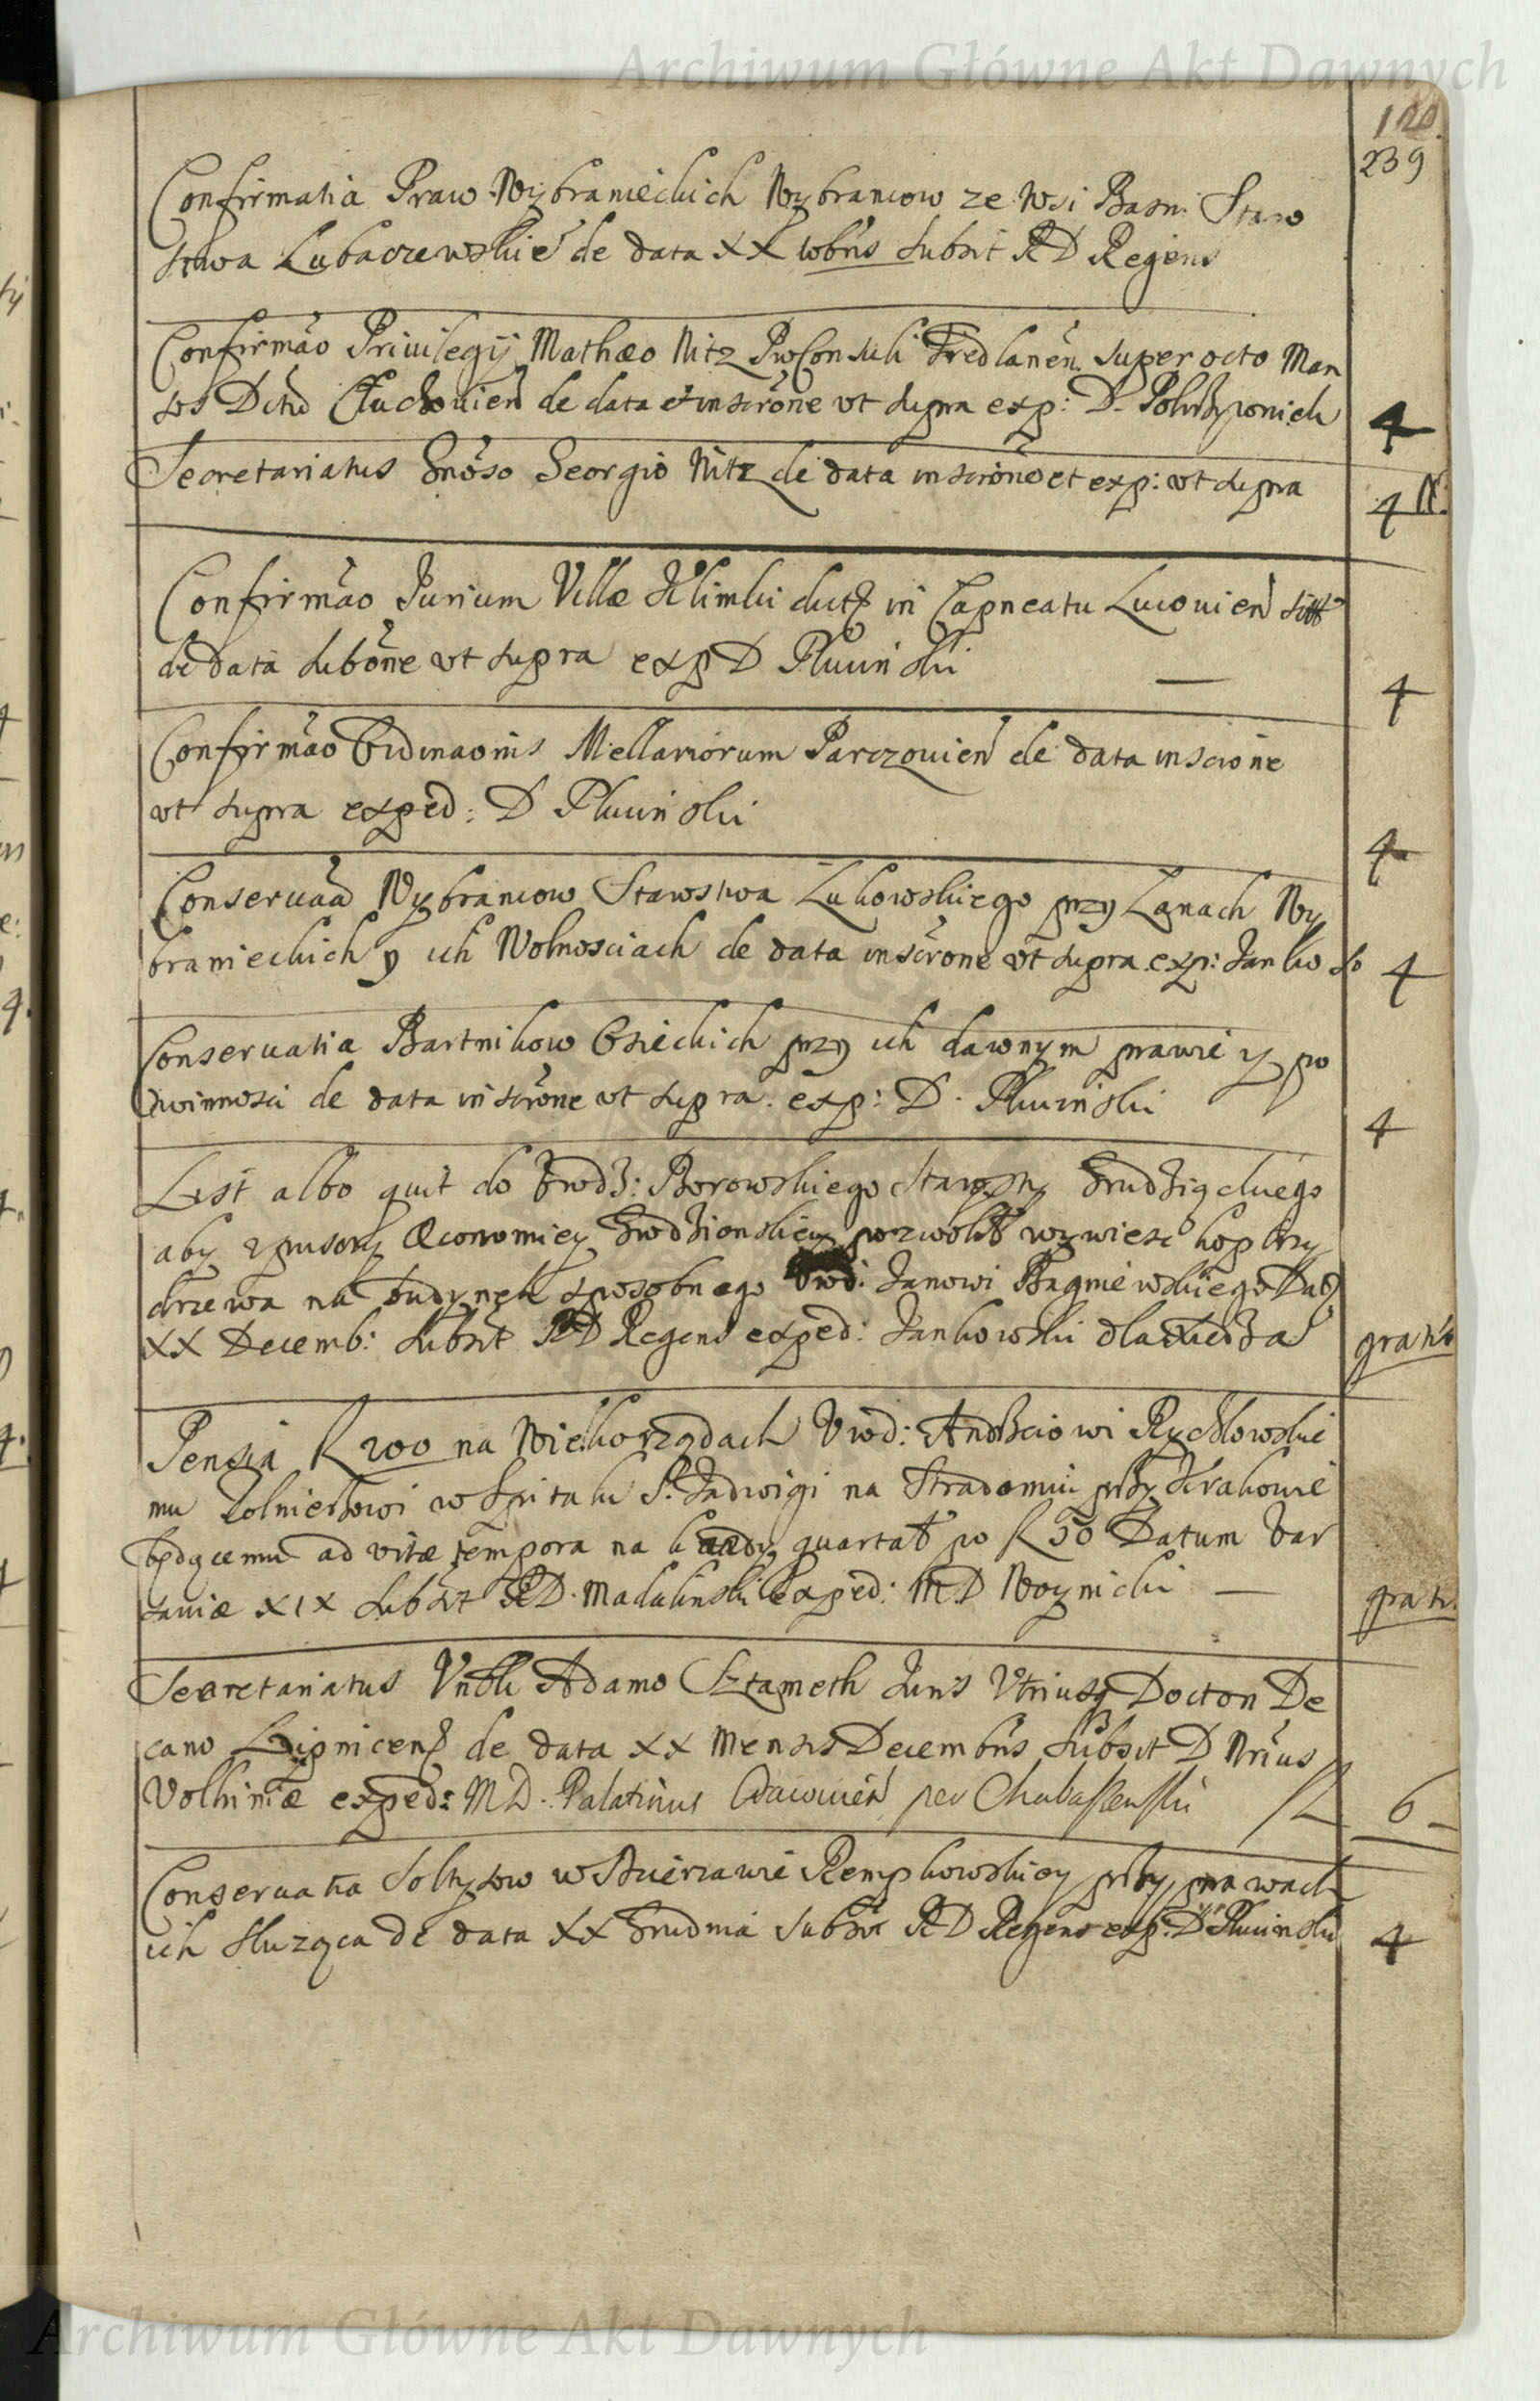 Archiwum Główne Akt Dawnych
120.
239
Confirmatia Praw Wybranieckich Wybrancow ze Wsi Basni Staro
stwa Lubaczewskie° de data XX Xobris subsit RD Regens
Confirmão Priuilegij Mathæo Nitz ProConsuli Fredlanen super octo Man
sos Dictus Cluchouien de data et inscrõne vt supra exp: D. 4
Secretariatus Gnõso Georgio Nitz de data inscrõne et exp: vt supra 4 N:
Confirmão Jurium Villæ Klimki dictæ in Capneatu Lucouien sitæ
de data subõne vt supra exp D Pluuinski — 4
Confirmão Ordinaonis Mellariorum Parczouien de data inscrone
vt supra exped: D Pluuinski 4
Conseruaã Wybrancow Starostwa Lukowskiego przy Lanach Wy
branieckich y ich Wolnosciach de data inscrõne vt supra exp: Janko so 4
Conseruatia Bartnikow Osieckich przy ich dawnym prawie y po
winnosci de data inscrõne vt supra. exp: D. Pluuinski 4
List albo quit do Vrodz: Borowskiego Starosty Grudziąckiego
aby z pusczy Œconomiey Grodzienskiey pozwolił wywiesc kop trzy
drzewa na budynek sposobnego Vrod: Janowi Bagniewskiego Dat
XX Decemb: subsit RD Regens exped: Jankowski dla xiedza gratis
Pensia f 200 na Wielkorządach Vrod: Andrzeiowi Rychlowskie
mu Zolnierzowi w Szpitalu S. Jadwigi na Stradomiu przy Krakowie
będącemu ad vitæ tempora na kazdy quartał po f 50 Datum Var
sauiæ XIX subsit RD. Madalinski Exped: MD Woynicki — gratis
Secretariatus Vnbli Adamo Sztameth Juris Vtriusq Doctori De
cano Lignicens de data XX Mensis Decembris subsit D Nrius
Volhiniæ exped: MD. Palatinus per 6 –
Conseruatia Soltysow w Rempkowskiey przy prawach
ich sluząca de data XX Grudnia subsit RD Regens exp: D Pluuinski 4
Archiwum Główne Akt Dawnych